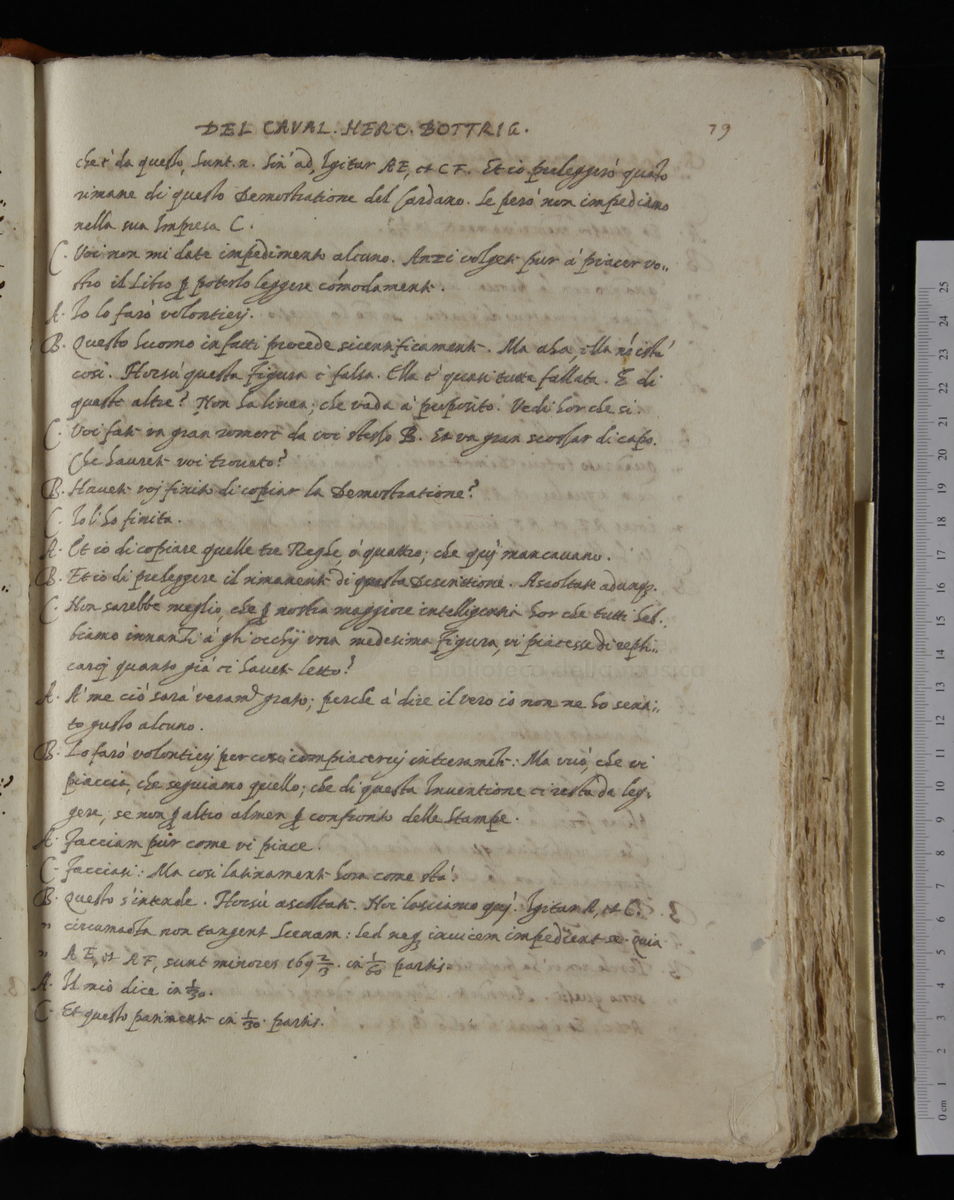 DEL CAVAL. HERC. BOTTRIG. 79
che è da questo, sunt. n. sin' ad, Igitur AE, et CF. Et io preleggerò quato
rimane di questo Demostratione del Cardano. Se però non impediamo
nella sua Impresa C.
C. Voi non mi date impedimento alcuno. Anzi volget pur à piacer vo-
stro il Libro p poterlo leggere cómodament.
A. Io lo farò volontierj.
B. Questo huomo in fatti procede sicentificament. Ma aha, ella nó istà
cosi. Horsù questa figura è falsa. Ella è quasi tutta fallata. E di
queste altre? Non ha linea, che vada à proposito. Vedi hor che si.
C. Voi fate vn gran romore da voi stesso B. Et vn gran scossar di capo.
Che hauete voi trouato?
B. Hauete voj finito di copiar la Demostratione?
C. Io l'ho finita.
A. Et io di copiare quelle tre Righe, ò quattro; che quj mancauano.
B. Et io di preleggere il rimanent di questa Descrittione. Ascoltate adunq;
C. Non sarebbe meglio, che p nostra maggiore intelligentia hor che tutti hab-
biamo innanzi à gli occhij vna medesima figura, vi piacesse di repli-
carcj quanto già ci hauete letto?
A. A' me ciò sarà veramt grato; perche à dire il vero io non ne ho senti-
to gusto alcuno.
B. Lo farò volontierj per cosi compiacervj interamt: Ma vuò, che vi
piaccia, che seguiamo quello; che di questa Inuentione ci resta da leg-
gere, se non p altro almen p confronto delle Stampe.
A. Facciam pur come vi piace.
C. Facciasi: Ma cosi latinament hora come stà.
B. Questo s'intende. Horsù ascoltate. Noi lasciamo quj. Igitur A, et C.
" circumacta non tangent Scenam: sed neq; inuicem impedient se. Quia
" AE, et AF, sunt minores 169 2/3. in 1/60 partis.
A. Il mio dice in 1/30.
C. Et questo pariment in 1/30. partis.